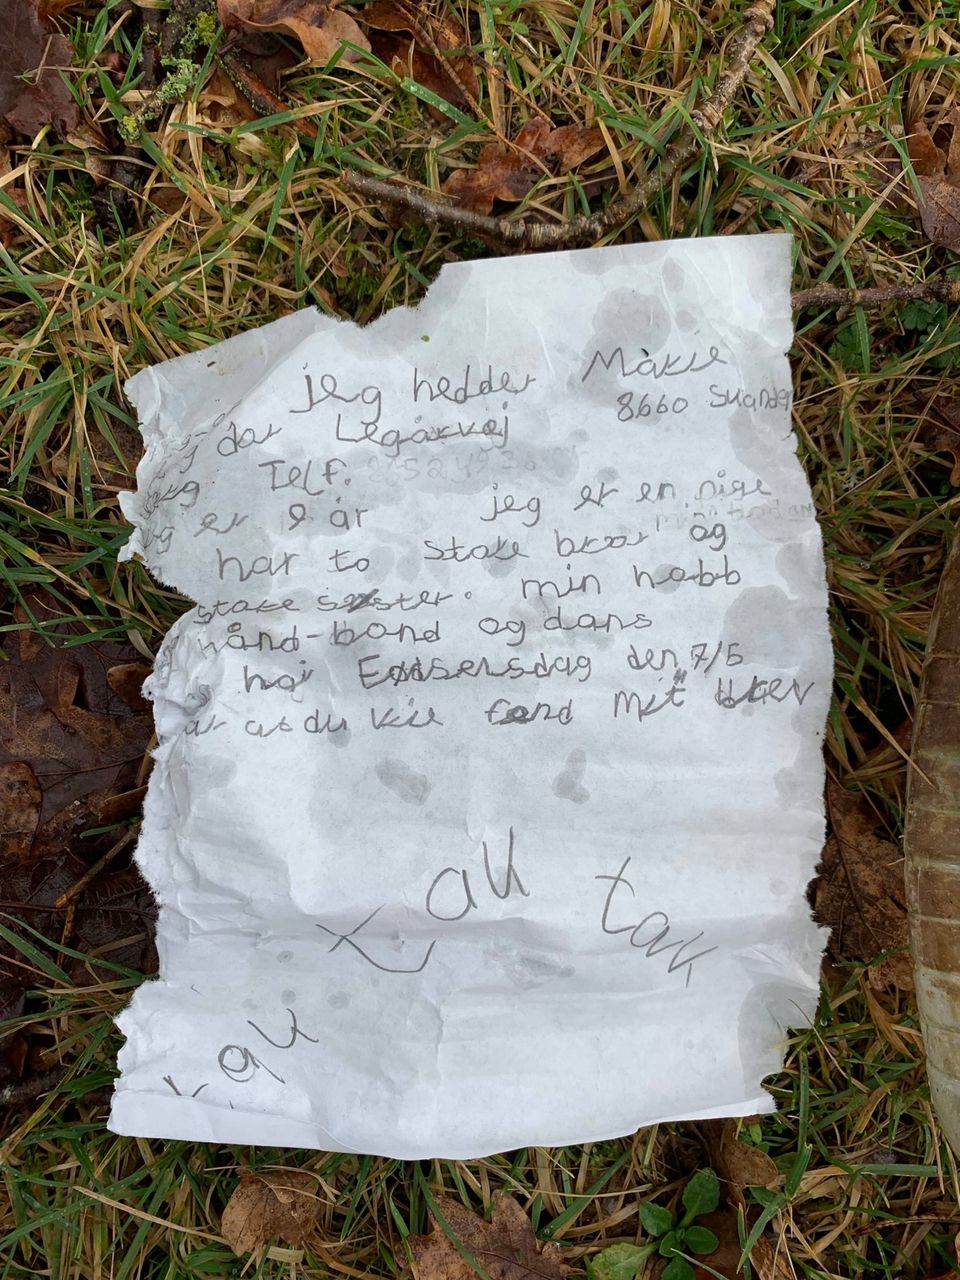 jeg hedder Marie
dar Legårvej 8660 Skander
Telf.
og er 9 år jeg er en pige
har to store brør og
store søster. min hobb
hånd-bond og dans
haj Fødsersdag den 7/5
ar at du vie fand Mit brev
tak tak
tak